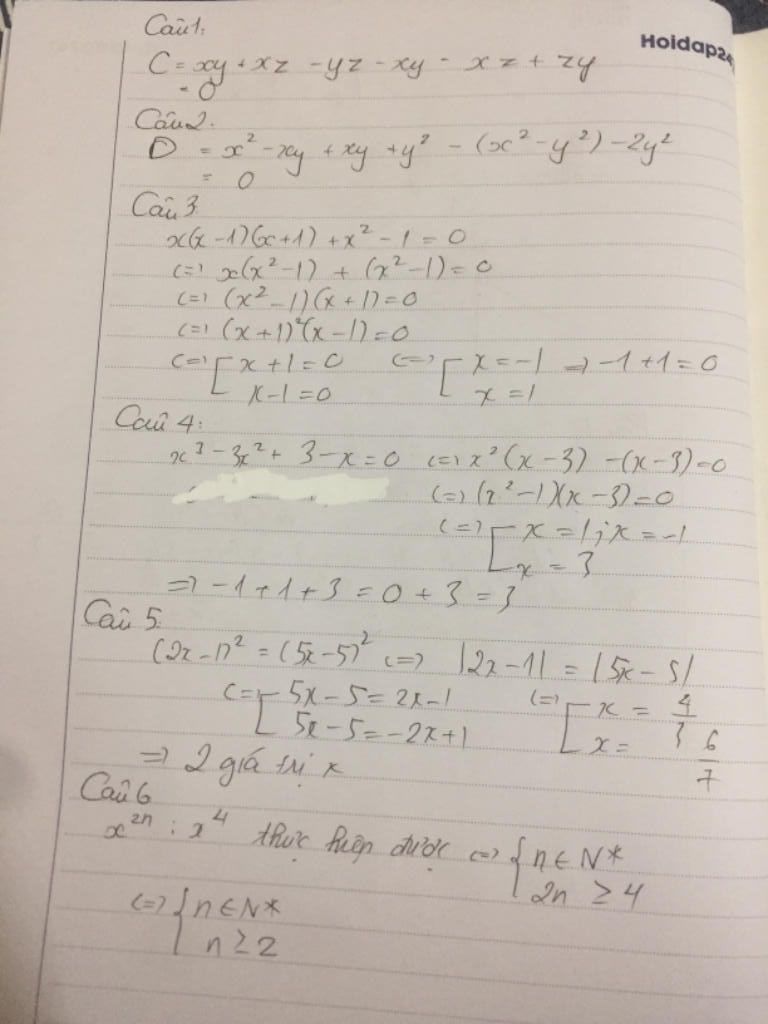 Câu 1:
Hoidap24
C = xy + xz - yz - xy - xz + zy
= 0
Câu 2:
D = x² - xy + xy + y² - (x² - y²) - 2y²
= 0
Câu 3
x(x - 1)(x + 1) + x² - 1 = 0
<=> x(x² - 1) + (x² - 1) = 0
<=> (x² - 1)(x + 1) = 0
<=> (x + 1)²(x - 1) = 0
<=> [ x + 1 = 0 <=> [ x = -1 => -1 + 1 = 0
x - 1 = 0 x = 1
Câu 4:
x³ - 3x² + 3 - x = 0 <=> x²(x - 3) - (x - 3) = 0
<=> (x² - 1)(x - 3) = 0
<=> [ x = 1; x = -1
x = 3
=> -1 + 1 + 3 = 0 + 3 = 3
Câu 5:
(2x - 1)² = (5x - 5)² <=> |2x - 1| = |5x - 5|
<=> [ 5x - 5 = 2x - 1 <=> [ x = 4/3
5x - 5 = -2x + 1 x = 6/7
=> 2 giá trị x
Câu 6
x²ⁿ : x⁴ thực hiện được <=> { n ∈ N*
2n ≥ 4
<=> { n ∈ N*
n ≥ 2